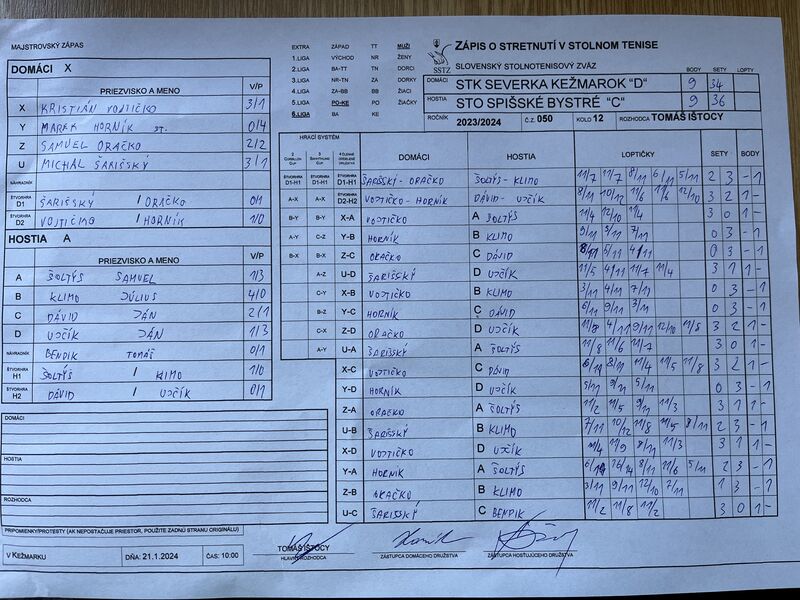 MAJSTROVSKÝ ZÁPAS
DOMÁCI X
PRIEZVISKO A MENO V/P
X KRISTIÁN VOJTIČKO 3/1
Y MAREK HORNÍK ST. 0/4
Z SAMUEL ORAČKO 2/2
U MICHAL ŠARIŠSKÝ 3/1
NÁHRADNÍK
ŠTVORHRA D1 ŠARIŠSKÝ / ORAČKO 0/1
ŠTVORHRA D2 VOJTIČKO / HORNÍK 1/0
HOSTIA A
PRIEZVISKO A MENO V/P
A ŠOLTÝS SAMUEL 1/3
B KLIMO JÚLIUS 4/0
C DÁVID JÁN 2/1
D UJČÍK JÁN 1/3
NÁHRADNÍK BENDIK TOMÁŠ 0/1
ŠTVORHRA H1 ŠOLTÝS / KIMO 1/0
ŠTVORHRA H2 DÁVID / UJČÍK 0/1
DOMÁCI
HOSTIA
ROZHODCA
PRIPOMIENKY/PROTESTY (AK NEPOSTAČUJE PRIESTOR, POUŽITE ZADNÚ STRANU ORIGINÁLU)
V KEŽMARKU DŇA: 21.1.2024 ČAS: 10:00
EXTRA ZÁPAD TT MUŽI
1.LIGA VÝCHOD NR ŽENY
2.LIGA BA-TT TN DORCI
3.LIGA NR-TN ZA DORKY
4.LIGA ZA-BB BB ŽIACI
5.LIGA PO-KE PO ŽIAČKY
6.LIGA BA KE
SSTZ
ZÁPIS O STRETNUTÍ V STOLNOM TENISE
SLOVENSKÝ STOLNOTENISOVÝ ZVÄZ
BODY SETY LOPTY
DOMÁCI STK SEVERKA KEŽMAROK "D" 9 34
HOSTIA STO SPIŠSKÉ BYSTRÉ "C" 9 36
ROČNÍK 2023/2024 Č.Z. 050 KOLO 12 ROZHODCA TOMÁŠ IŠTOCY
HRACÍ SYSTÉM
DOMÁCI HOSTIA LOPTIČKY SETY BODY
ŠTVORHRA D1-H1 ŠTVORHRA D1-H1 ŠTVORHRA D1-H1 ŠARIŠSKÝ - ORAČKO ŠOLTÝS - KLIMO 2 3 - 1
A-X A-X ŠTVORHRA D2-H2 VOJTIČKO - HORNÍK DÁVID - UJČÍK 8/11 10/12 11/6 11/6 12/10 3 2 1 -
B-Y B-Y X-A VOJTIČKO A ŠOLTÝS 11/4 12/10 11/4 3 0 1 -
A-Y C-Z Y-B HORNÍK B KLIMO 9/11 5/11 7/11 0 3 - 1
B-X B-X Z-C ORAČKO C DÁVID 8/11 5/11 4/11 0 3 - 1
A-Z U-D ŠARIŠSKÝ D UJČÍK 11/5 4/11 11/7 11/4 3 1 1 -
C-Y X-B VOJTIČKO B KLIMO 3/11 4/11 7/11 0 3 - 1
B-Z Y-C HORNÍK C DÁVID 6/11 9/11 3/11 0 3 - 1
C-X Z-D ORAČKO D UJČÍK 11/8 4/11 9/11 12/10 11/5 3 2 1 -
A-Y U-A ŠARIŠSKÝ A ŠOLTÝS 11/8 11/6 11/7 3 0 1 -
X-C VOJTIČKO C DÁVID 8/11 11/4 11/5 11/8 3 2 1 -
Y-D HORNÍK D UJČÍK 5/11 9/11 5/11 0 3 - 1
Z-A ORAČKO A ŠOLTÝS 11/2 11/5 9/11 11/3 3 1 1 -
U-B ŠARIŠSKÝ B KLIMO 7/11 10/12 11/8 11/5 8/11 2 3 - 1
X-D VOJTIČKO D UJČÍK 11/4 11/9 8/11 11/3 3 1 1 -
Y-A HORNÍK A ŠOLTÝS 16/14 8/11 11/6 5/11 2 3 - 1
Z-B ORAČKO B KLIMO 3/11 9/11 12/10 7/11 1 3 - 1
U-C ŠARIŠSKÝ C BENDIK 11/2 11/8 11/2 3 0 1 -
TOMÁŠ IŠTOCY
HLAVNÝ ROZHODCA ZÁSTUPCA DOMÁCEHO DRUŽSTVA ZÁSTUPCA HOSŤUJÚCEHO DRUŽSTVA